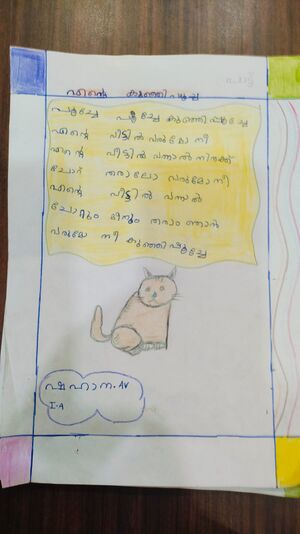 പാട്ട്
എന്റെ കുഞ്ഞിപ്പൂച്ച
പൂച്ചേ പൂച്ചേ കുഞ്ഞിപ്പൂച്ചേ
എന്റെ വീട്ടിൽ വരുമോ നീ
എന്റെ വീട്ടിൽ വന്നാൽ നിനക്ക്
ചോറ് തരാലോ വരുമോ നീ
എന്റെ വീട്ടിൽ വന്നാൽ
ചോറും മീനും തരാം ഞാൻ
വരുമോ നീ കുഞ്ഞിപ്പൂച്ചേ
ഷഹാന.AV
I-A